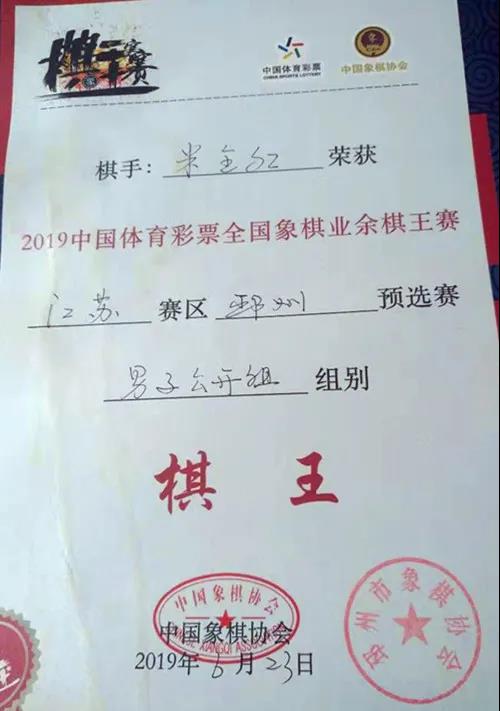 棋王赛
中国体育彩票
CHINA SPORTS LOTTERY
中国象棋协会
棋手：米全红荣获
2019中国体育彩票全国象棋业余棋王赛
江苏赛区邳州预选赛
男子公开组组别
棋王
中国象棋协会
CHINESE XIANGQI ASSOCIATION
邳州市象棋协会
中国象棋协会
2019年6月23日